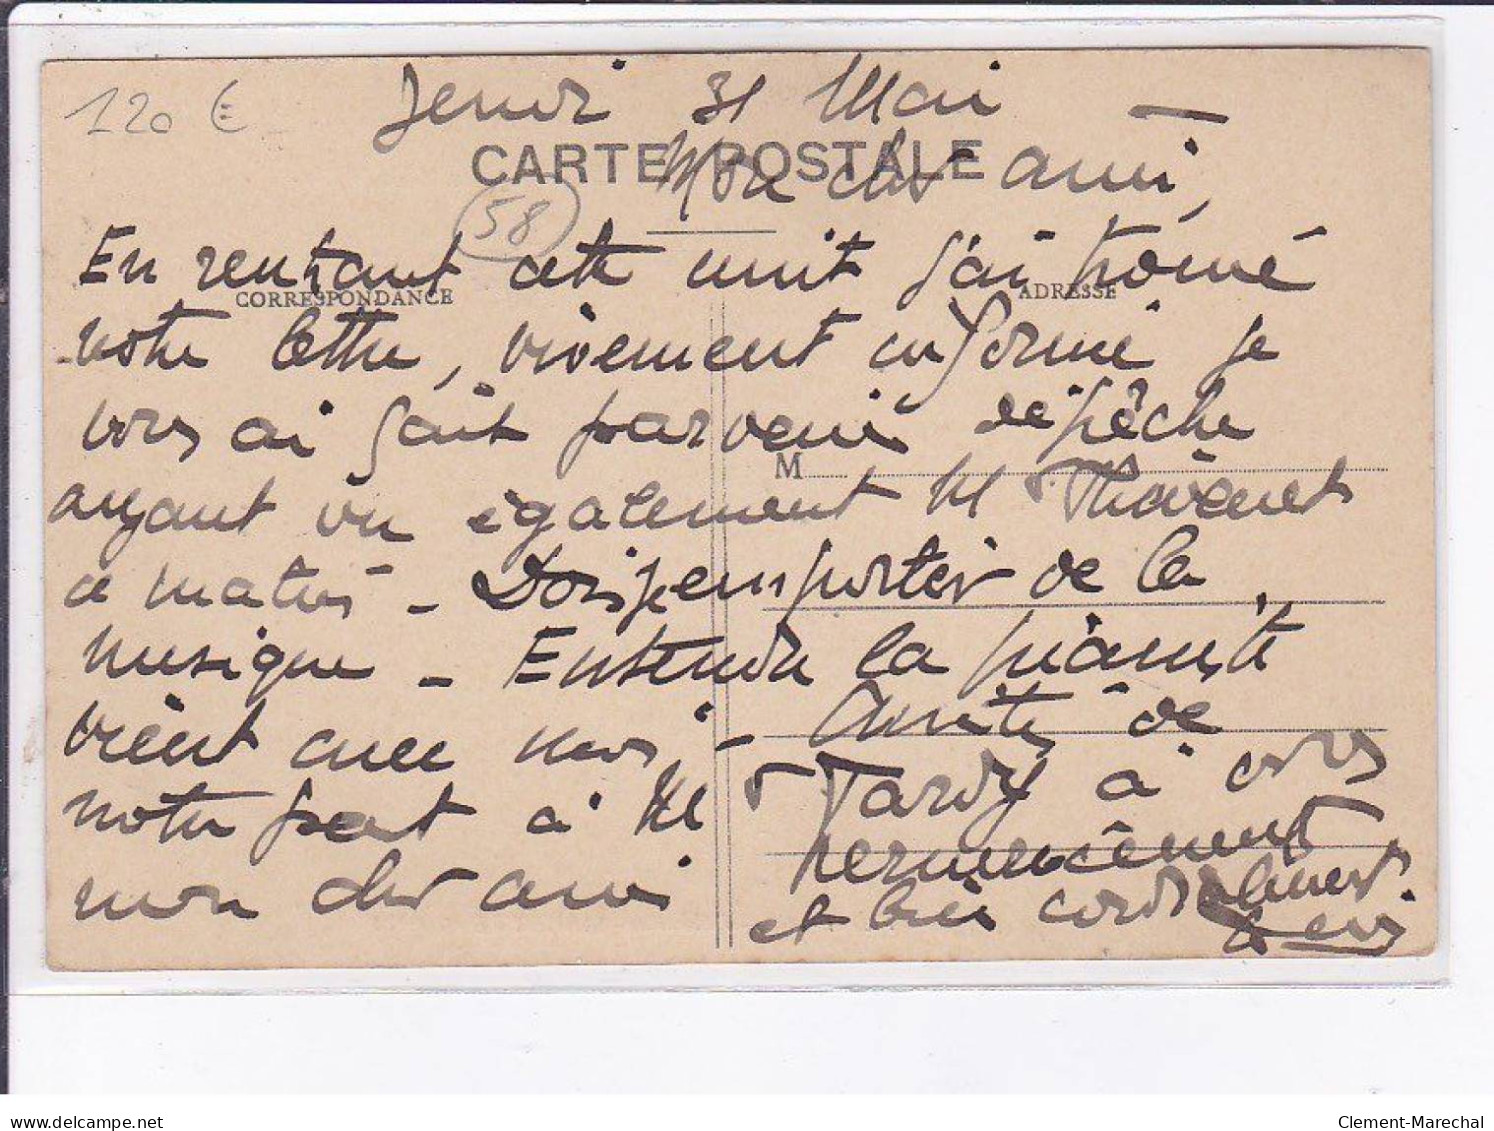 120 €
Jeudi 31 Mai
CARTE POSTALE
Mon cher ami,
58
En rentrant cette nuit j'ai trouvé
CORRESPONDANCE
ADRESSE
votre lettre, vivement informé je
vous ai fait parvenir dépêche
M
ayant vu également M Thévenet
ce matin - Dois emporter de la
musique - Entendu la pianiste
vient avec nous, - Amitiés de
notre part à M Tardy à vous
mon cher ami remerciement
et bien cordialement
delcampe.net
Clement-Marechal